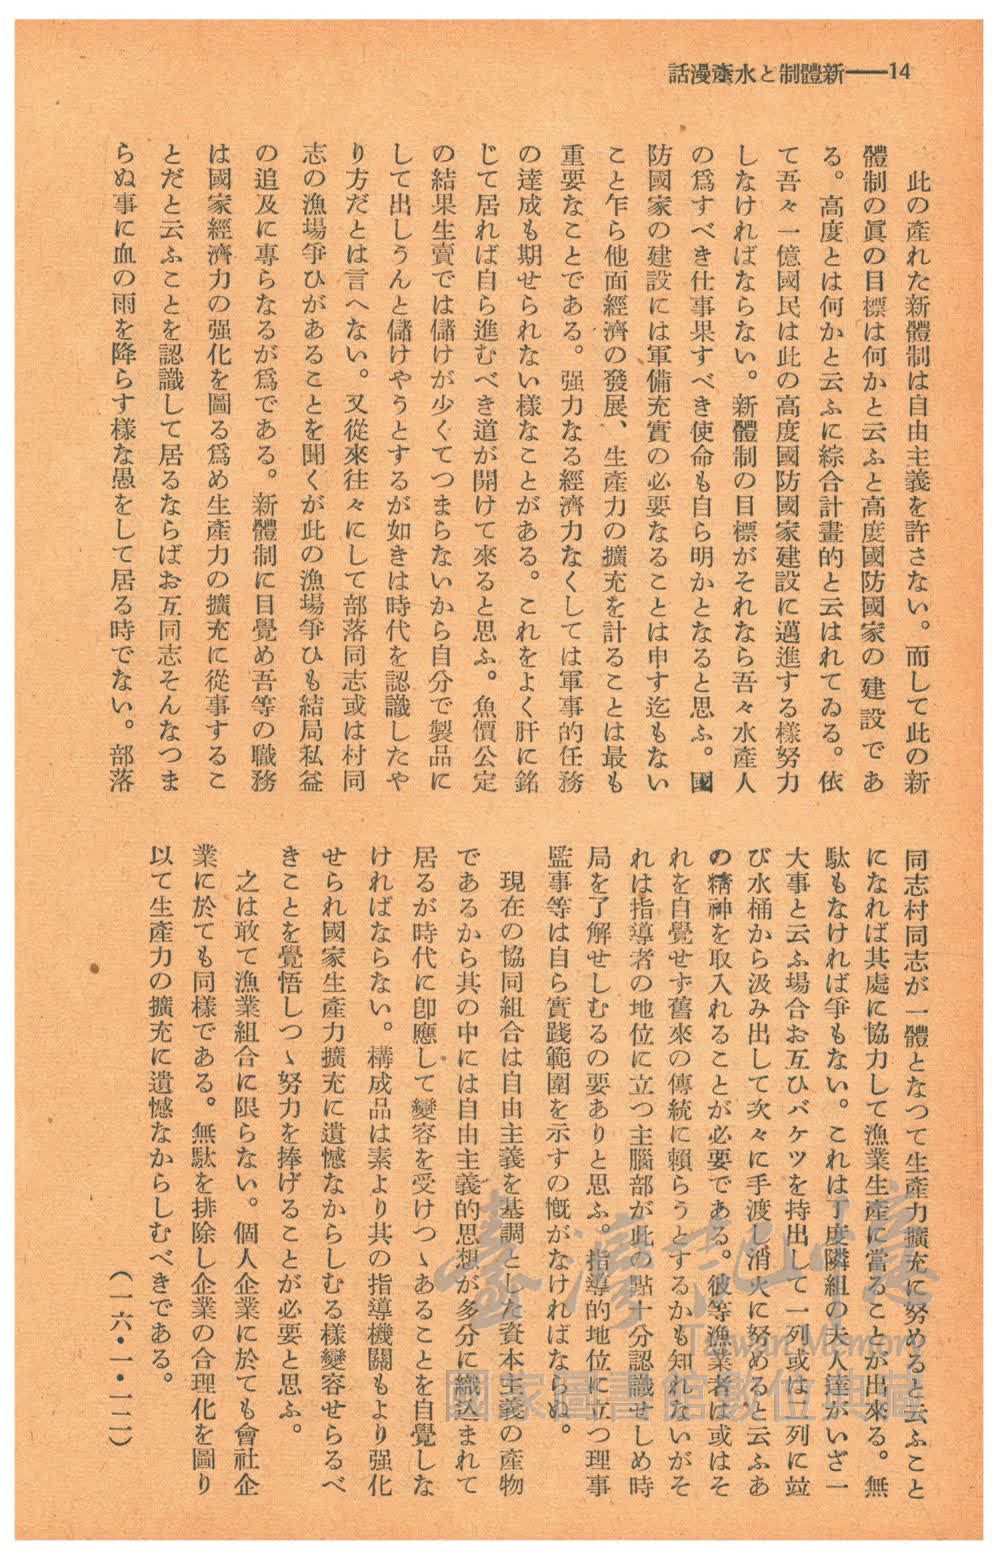 話漫產水と制體新——14
此の產れた新體制は自由主義を許さない。而して此の新
體制の眞の目標は何かと云ふと高度國防國家の建設であ
る。高度とは何かと云ふに綜合計畫的と云はれてゐる。依
て吾々一億國民は此の高度國防國家建設に邁進する樣努力
しなければならない。新體制の目標がそれなら吾々水產人
の爲すべき仕事果すべき使命も自ら明かとなると思ふ。國
防國家の建設には軍備充實の必要なることは申す迄もない
こと乍ら他面經濟の發展、生產力の擴充を計ることは最も
重要なことである。强力なる經濟力なくしては軍事的任務
の達成も期せられない樣なことがある。これをよく肝に銘
じて居れば自ら進むべき道が開けて來ると思ふ。魚價公定
の結果生賣では儲けが少くてつまらないから自分で製品に
して出しうんと儲けやうとするが如きは時代を認識したや
り方だとは言へない。又從來往々にして部落同志或は村同
志の漁場爭ひがあることを聞くが此の漁場爭ひも結局私益
の追及に專らなるが爲である。新體制に目覺め吾等の職務
は國家經濟力の强化を圖る爲め生產力の擴充に從事するこ
とだと云ふことを認識して居るならばお互同志そんなつま
らぬ事に血の雨を降らす樣な愚をして居る時でない。部落
同志村同志が一體となつて生產力擴充に努めると云ふこと
になれば其處に協力して漁業生產に當ることが出來る。無
駄もなければ爭もない。これは丁度隣組の夫人達がいざ一
大事と云ふ場合お互ひバケツを持出して一列或は二列に竝
び水桶から汲み出して次々に手渡し消火に努めると云ふあ
の精神を取入れることが必要である。彼等漁業者は或はそ
れを自覺せず舊來の傳統に賴らうとするかも知れないがそ
れは指導者の地位に立つ主腦部が此の點十分認識せしめ時
局を了解せしむるの要ありと思ふ。指導的地位に立つ理事
監事等は自ら實踐範圍を示すの慨がなければならぬ。
現在の協同組合は自由主義を基調とした資本主義の產物
であるから其の中には自由主義的思想が多分に織込まれて
居るが時代に卽應して變容を受けつゝあることを自覺しな
ければならない。構成品は素より其の指導機關もより强化
せられ國家生產力擴充に遺憾なからしむる樣變容せらるべ
きことを覺悟しつゝ努力を捧げることが必要と思ふ。
之は敢て漁業組合に限らない。個人企業に於ても會社企
業に於ても同樣である。無駄を排除し企業の合理化を圖り
以て生產力の擴充に遺憾なからしむべきである。
（一六・一・一二）
臺灣記憶
Taiwan Memory
國家圖書館數位典藏